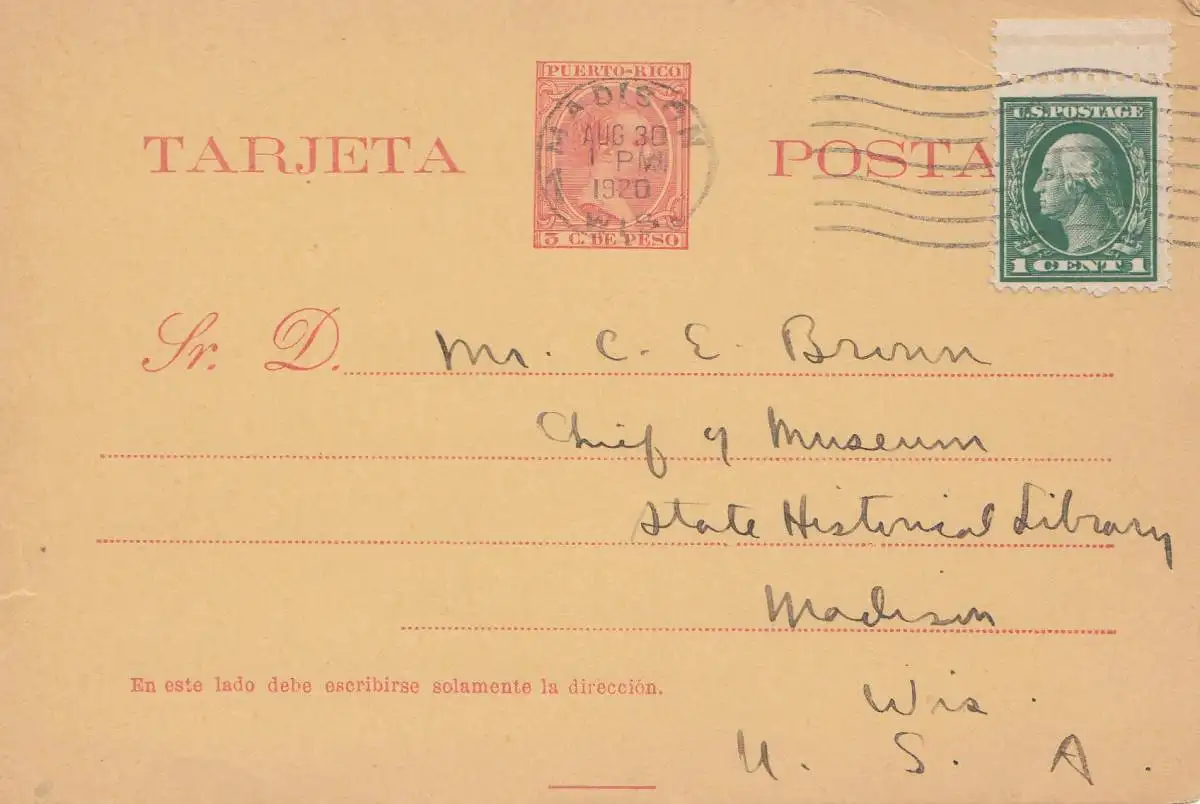 PUERTO-RICO
TARJETA POSTA
3 C. DE PESO
MADISON
AUG 30
1 PM
1920
WIS.
U.S. POSTAGE
1 CENT 1
Sr. D. Mr. C. E. Brown
Chief of Museum
State Historical Library
Madison
Wis.
U. S. A.
En este lado debe escribirse solamente la dirección.